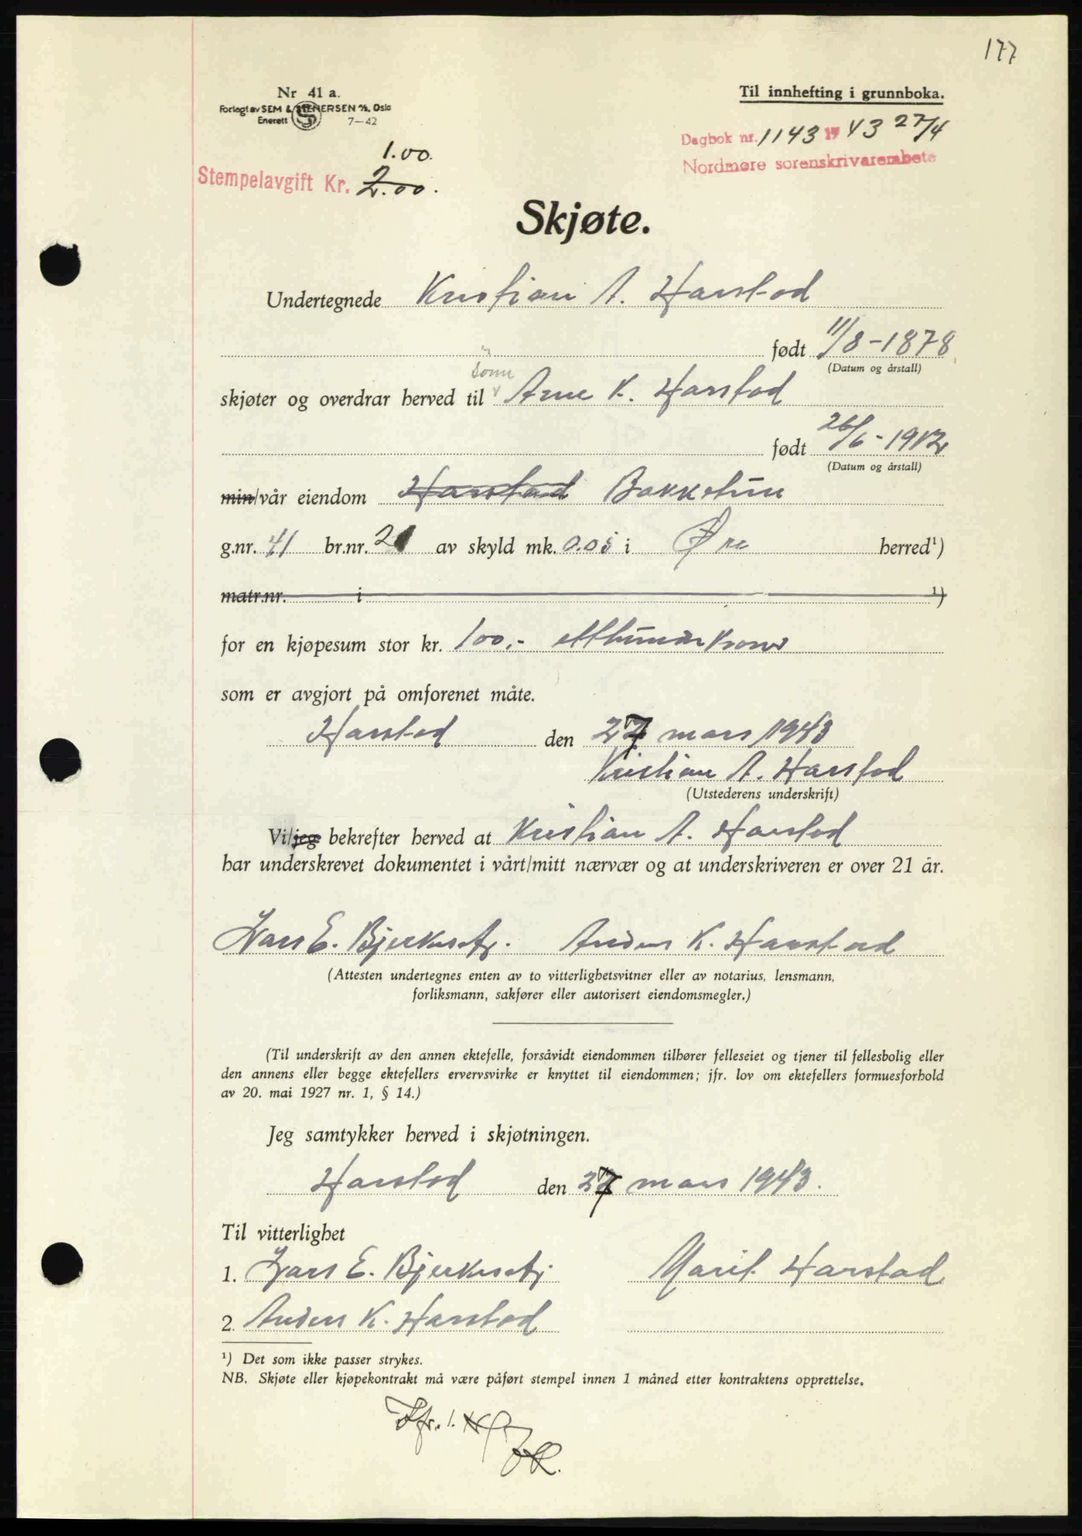 177
Nr 41 a.
Forlagt av SEM & STENERSEN A/S, Oslo
Enerett 7-42
Til innhefting i grunnboka.
Dagbok nr. 1143 1943 27/4
Nordmøre sorenskriverembete
1.00.
Stempelavgift Kr. 2.00.
Skjøte.
Undertegnede Kristian A. Harstad
født 11/8-1878
(Datum og årstall)
sønn
skjøter og overdrar herved til Arne K. Harstad
født 26/6-1912
(Datum og årstall)
min/vår eiendom Harstad Bakketun
g.nr. 41 br.nr. 21 av skyld mk. 0.05 i Øre herred¹)
matr.nr. i ¹)
for en kjøpesum stor kr. 100.- etthundrekroner
som er avgjort på omforenet måte.
Harstad den 27 mars 1943
Kristian A. Harstad
(Utstederens underskrift)
Vi/jeg bekrefter herved at Kristian A. Harstad
har underskrevet dokumentet i vårt/mitt nærvær og at underskriveren er over 21 år.
Lars E. Anders K. Harstad
(Attesten undertegnes enten av to vitterlighetsvitner eller av notarius, lensmann,
forliksmann, sakfører eller autorisert eiendomsmegler.)
(Til underskrift av den annen ektefelle, forsåvidt eiendommen tilhører felleseiet og tjener til fellesbolig eller
den annens eller begge ektefellers ervervsvirke er knyttet til eiendommen; jfr. lov om ektefellers formuesforhold
av 20. mai 1927 nr. 1, § 14.)
Jeg samtykker herved i skjøtningen.
Harstad den 27 mars 1943.
Til vitterlighet
1. Lars E. Marit Harstad
2. Anders K. Harstad
¹) Det som ikke passer strykes.
NB. Skjøte eller kjøpekontrakt må være påført stempel innen 1 måned etter kontraktens opprettelse.